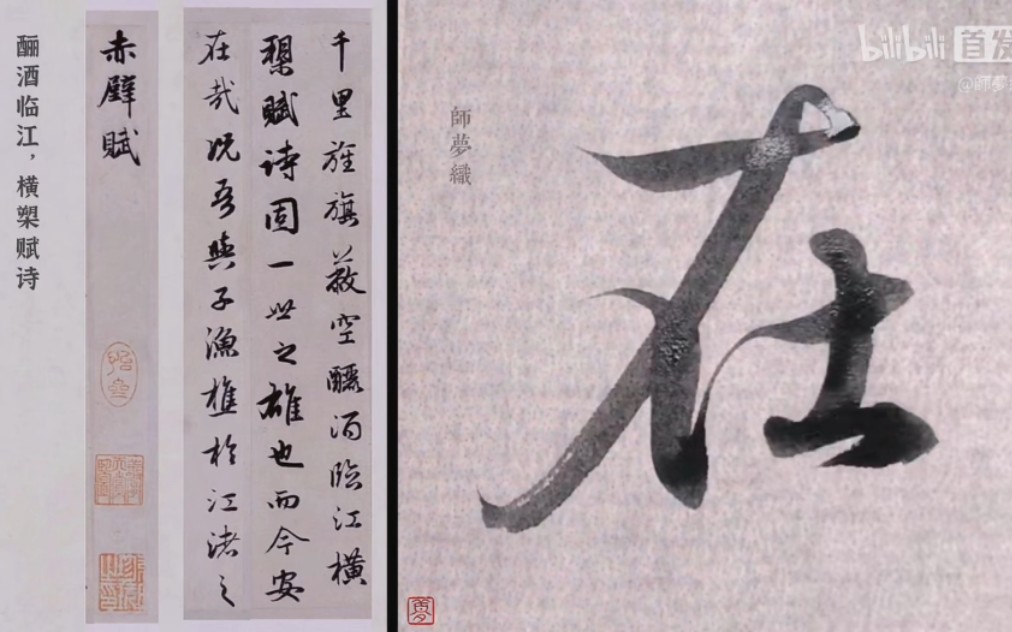 酾酒临江，横槊赋诗
赤壁赋
千里旌旗蔽空酾酒临江横
槊赋诗固一世之雄也而今安
在哉况吾与子渔樵於江渚之
師夢纖
在
bilibili 首发
@師夢